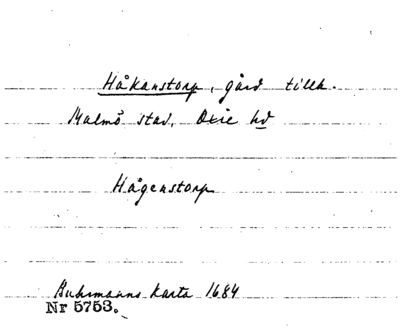 Håkanstorp, gård tillh.
Malmö stad, Oxie hd
Hågenstorp
Buhrmanns karta 1684
Nr 5753.